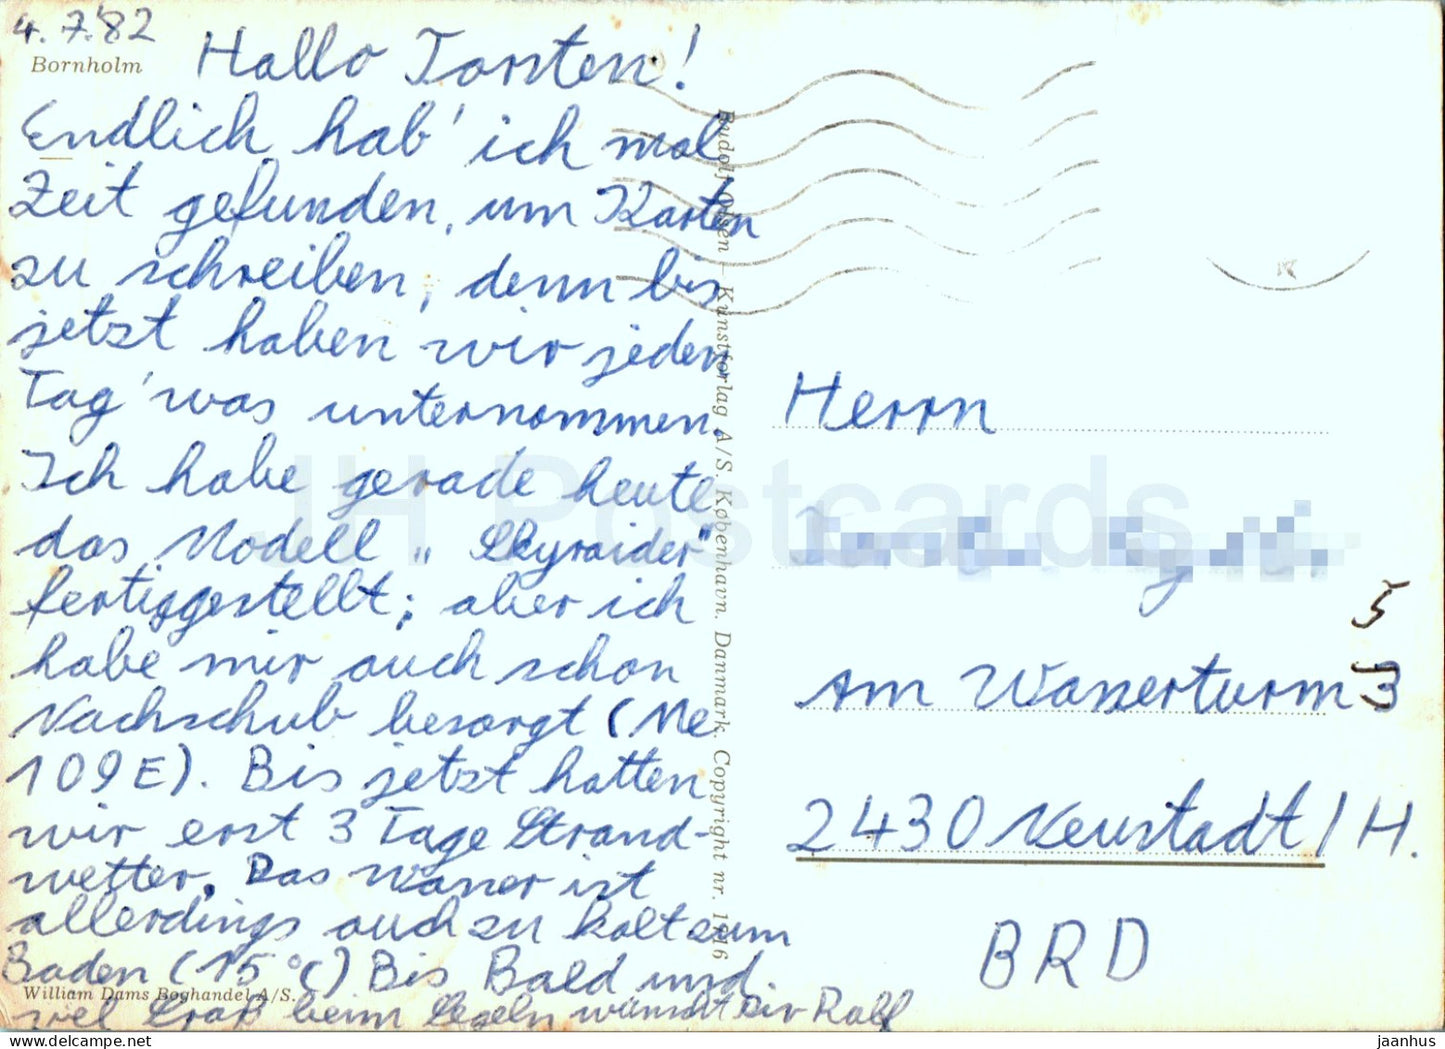 4.7.'82
Bornholm
Hallo Torsten!
Endlich hab' ich mal
Zeit gefunden, um Karten
zu schreiben, denn bis
jetzt haben wir jeden
Tag 'was unternommen.
Ich habe gerade heute
das Modell „Skyraider"
fertiggestellt; aber ich
habe mir auch schon
Nachschub besorgt (Me
109E). Bis jetzt hatten
wir erst 3 Tage Strand-
wetter. Das Wasser ist
allerdings auch zu kalt zum
Baden (15°C) Bis Bald und
viel Spaß beim Segeln wünscht Dir Ralf
William Dams Boghandel A/S.
Rudolf Olsen – Kunstforlag A/S. København. Danmark. Copyright nr.
Herrn
Am Wasserturm 3
5
2430 Neustadt / H.
BRD
JH Postcards
www.delcampe.net
jaanhus